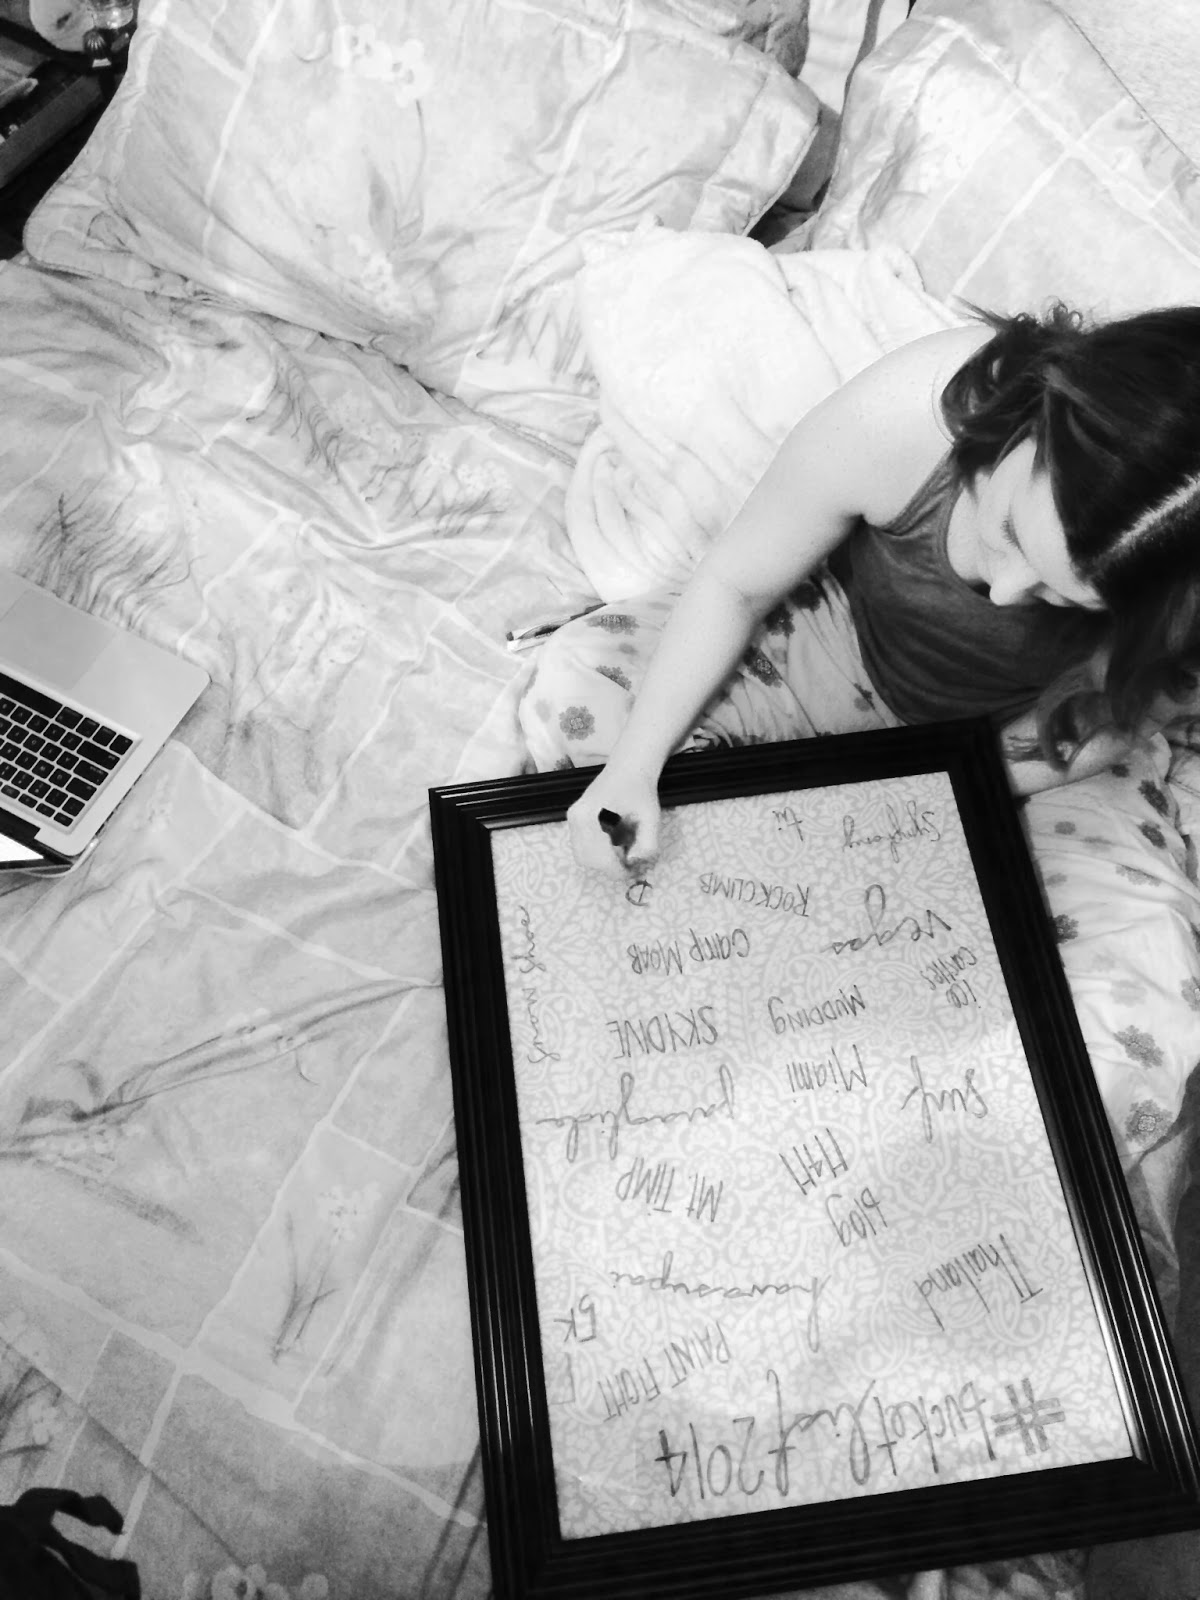 #bucketlist2014
Thailand
PAINT FIGHT
5K
havasupai
blog
Mt. TIMP
surf
Miami
paraglide
ice
castles
MUDDING
SKYDIVE
vegas
CAMP MOAB
Snow shoe
ROCK CLIMB
D
Symphony
tri